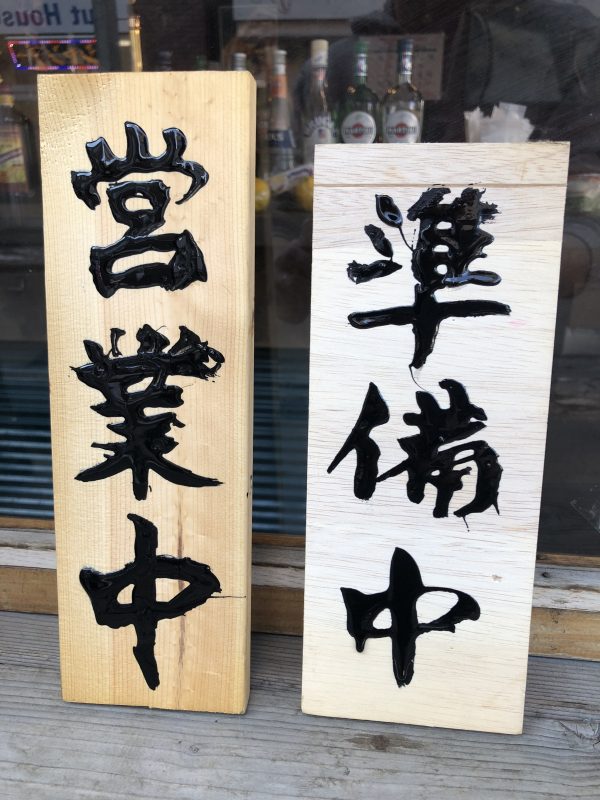 営業中
準備中
ut House
MARTINI
MARTINI